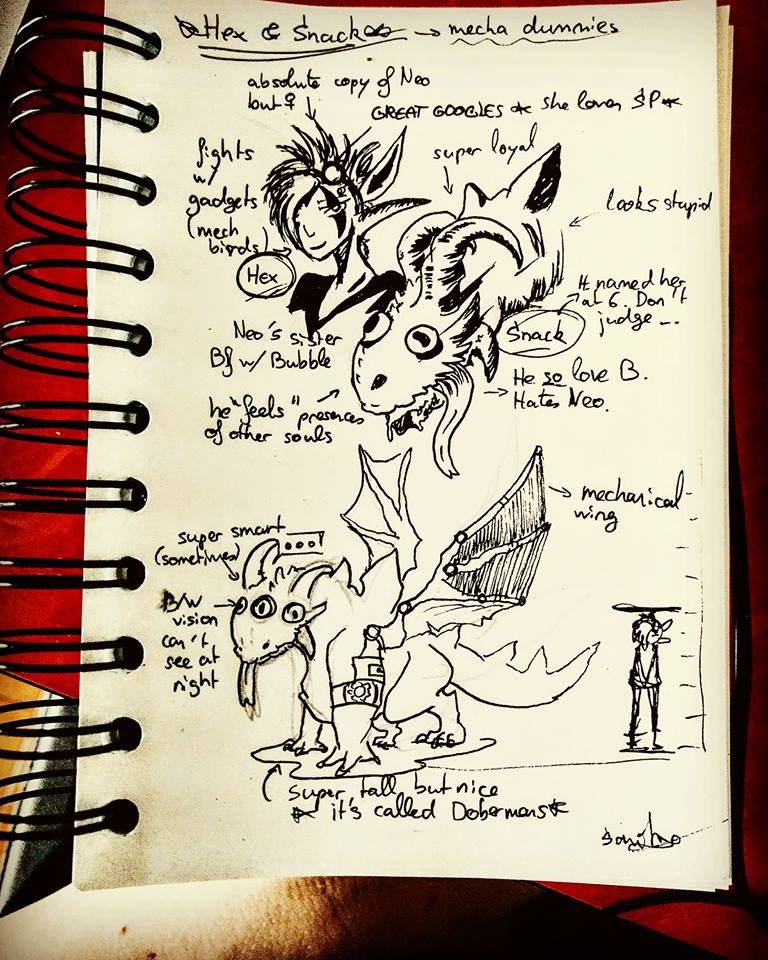 Hex & Snack → mecha dummies
absolute copy of Neo
but ♀
GREAT GOOGLES ★ she loves SP ★
fights
w/
gadgets
(mech
birds)
super loyal
looks stupid
Hex
H named her
at 6. Don't
judge ...
Snack
Neo's sister
Bf w/ Bubble
He so love B.
Hates Neo.
he "feels" presences
of other souls
mechanical
wing
super smart
(sometimes)
...
B/W
vision
can't
see at
night
super tall but nice
★ it's called Dobermens ★